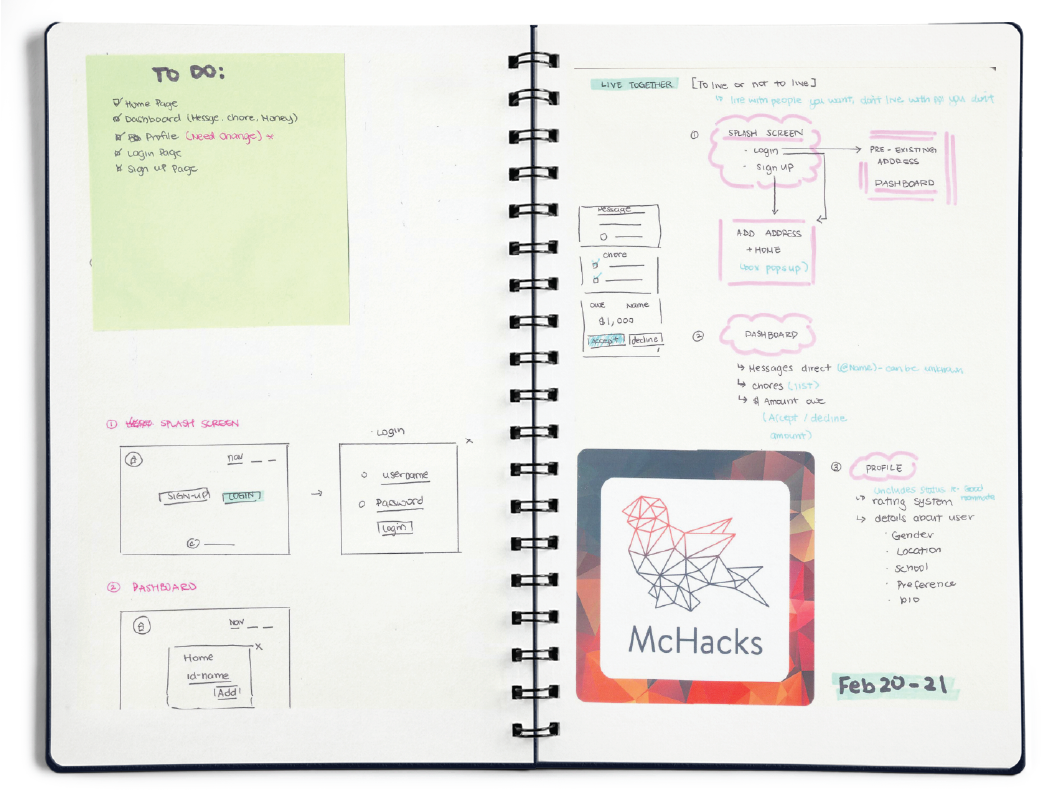 TO DO:
Home Page
Dashboard (Messge, chore, Money)
Profile (Need change)
Login Page
Sign up Page
① SPLASH SCREEN
nav
SIGN-UP
LOGIN
©
· Login
x
username
Password
Login
② DASHBOARD
nav
x
Home
id-name
Add
LIVE TOGETHER [To live or not to live]
live with people you want, don't live with ppl you don't
① SPLASH SCREEN
· Login
· Sign up
PRE-EXISTING
ADDRESS
DASHBOARD
ADD ADDRESS
+ HOME
(box pops up)
Message
chore
owe Name
$1,000
Accept decline
② DASHBOARD
↳ Messages direct (@Name) - can be unknown
↳ chores (list)
↳ $ Amount owe
(Accept / decline
amount)
③ PROFILE
↳ rating system
↳ details about user
· Gender
· Location
· School
· Preference
· bio
McHacks
Feb 20-21